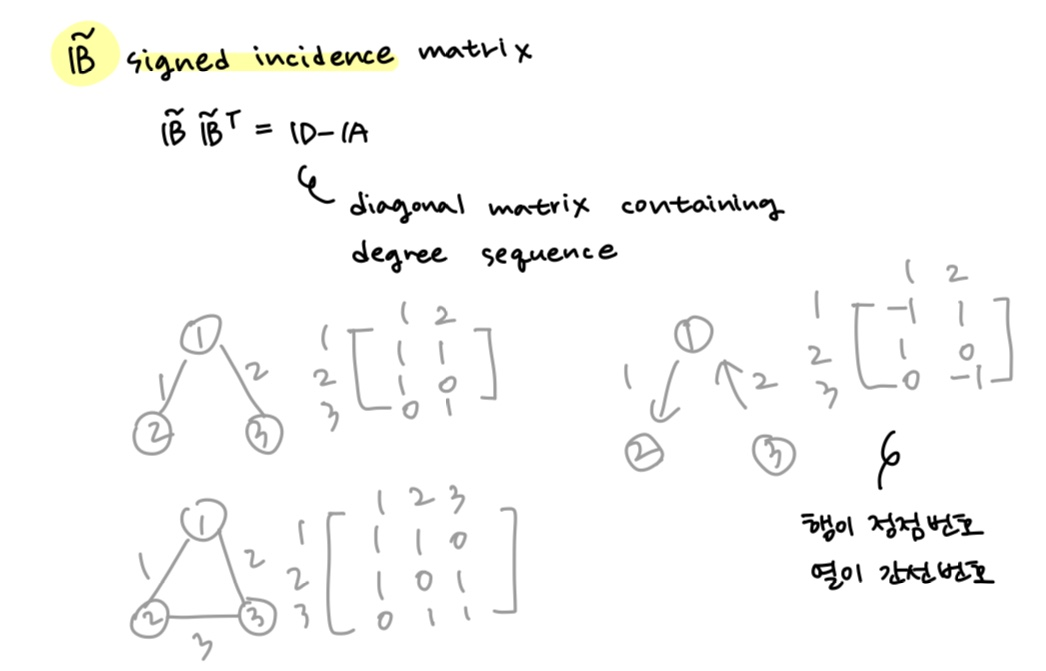 B̃ signed incidence matrix
B̃ B̃ᵀ = D-A
diagonal matrix containing
degree sequence
1 2
1 1 1
2 1 0
3 0 1
1
1 2
2 3
1 2
1 -1 1
2 1 0
3 0 -1
1
1 2
2 3
행이 정점번호
열이 간선번호
1 2 3
1 1 1 0
2 1 0 1
3 0 1 1
1
1 2
2 3
3